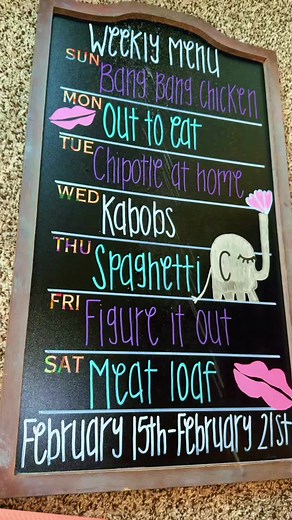 Weekly Menu
SUN Bang Bang Chicken
MON Out to eat
TUE Chipotle at home
WED Kabobs
THU Spaghetti C
FRI Figure it out
SAT Meat loaf
February 15th-February 21st